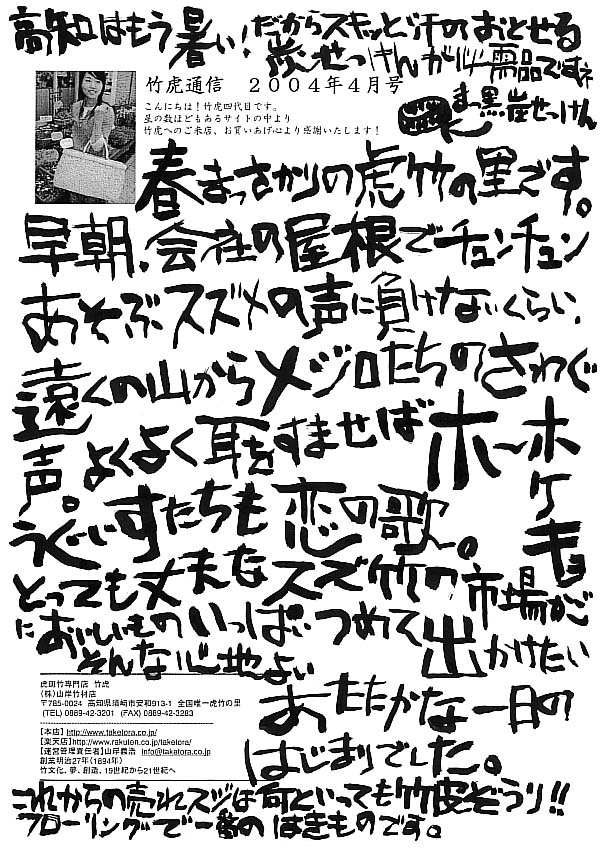 高知はもう暑い！だからスキッと汗のおとせる
炭せっけんが必需品ですネ
まっ黒炭せっけん
竹虎通信 2004年4月号
こんにちは！竹虎四代目です。
星の数ほどもあるサイトの中より
竹虎へのご来店、お買いあげ心より感謝いたします！
春まっさかりの虎竹の里です。
早朝、会社の屋根でチュンチュン
あそぶスズメの声に負けないくらい、
遠くの山からメジロたちのさわぐ
声。よくよく耳をすませばホーホケキョ
うぐいすたちも恋の歌。
とっても丈夫なスズ竹の市場かご
においしいものいっぱいつめて出かけたい
そんな心地よい
あたたかな一日の
はじまりでした。
虎斑竹専門店 竹虎
（株）山岸竹材店
〒785-0024 高知県須崎市安和913-1 全国唯一虎竹の里
(TEL) 0889-42-3201 (FAX) 0889-42-3283
【本店】http://www.taketora.co.jp/
【楽天店】http://www.rakuten.co.jp/taketora/
【運営管理責任者】山岸義浩 info@taketora.co.jp
創業明治27年（1894年）
竹文化、夢、創造、19世紀から21世紀へ
これからの売れスジは何といっても竹皮ぞうり!!
フローリングで一番のはきものです。